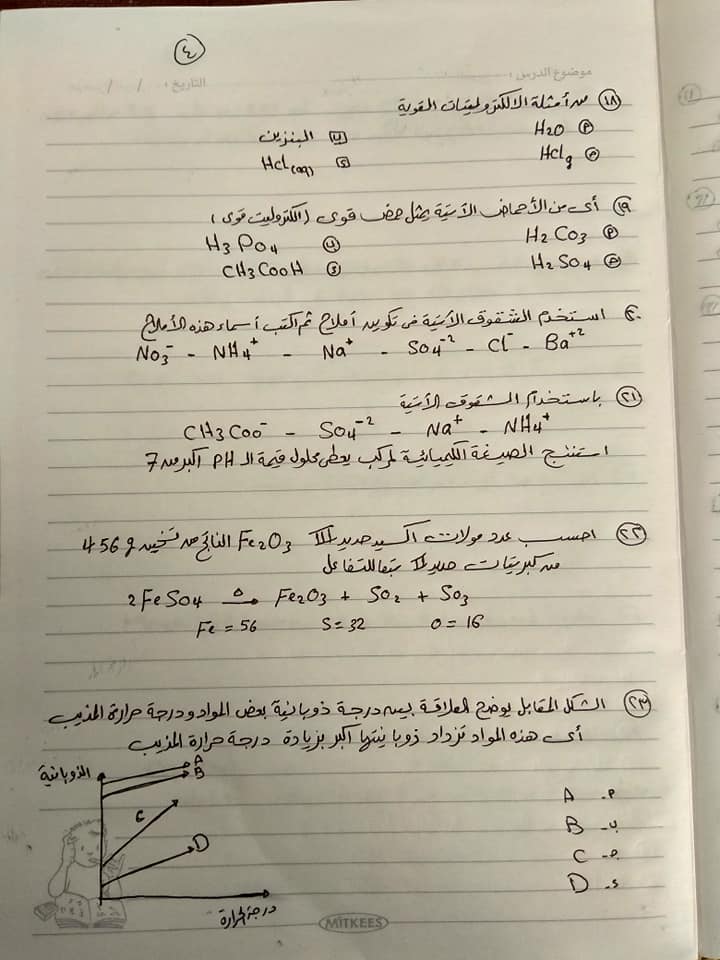 ٤
موضوع الدرس : التاريخ : / /
١٨ من أمثلة الالكتروليتات القوية
أ H2O ب البنزين
ج HClg د HCl(aq)
١٩ أى من الأحماض الآتية يمثل حمض قوى (الكتروليت قوى)
أ H2Co3 ب H3Po4
ج H2So4 د CH3CooH
٢٠ استخدم الشقوق الآتية فى تكوين أملاح ثم اكتب أسماء هذه الأملاح
No3⁻ - NH4⁺ - Na⁺ - So4⁻² - Cl⁻ - Ba⁺²
٢١ باستخدام الشقوق الآتية
CH3Coo⁻ - So4⁻² - Na⁺ - NH4⁺
استنتج الصيغة الكيميائية لمركب يعطى محلول قيمة الـ PH أكبر من 7
٢٢ احسب عدد مولات أكسيد حديد III Fe2O3 الناتج من تسخين 456 g
من كبريتات حديد II تبعا للتفاعل
2FeSo4 Δ→ Fe2O3 + So2 + So3
Fe = 56 S = 32 O = 16
٢٣ الشكل المقابل يوضح العلاقة بين درجة ذوبانية بعض المواد ودرجة حرارة المذيب
أى هذه المواد تزداد ذوبانيتها اكبر بزيادة درجة حرارة المذيب
أ- A
ب- B
ج- C
د- D
الذوبانية
A
B
C
D
درجة الحرارة
MiTKEES